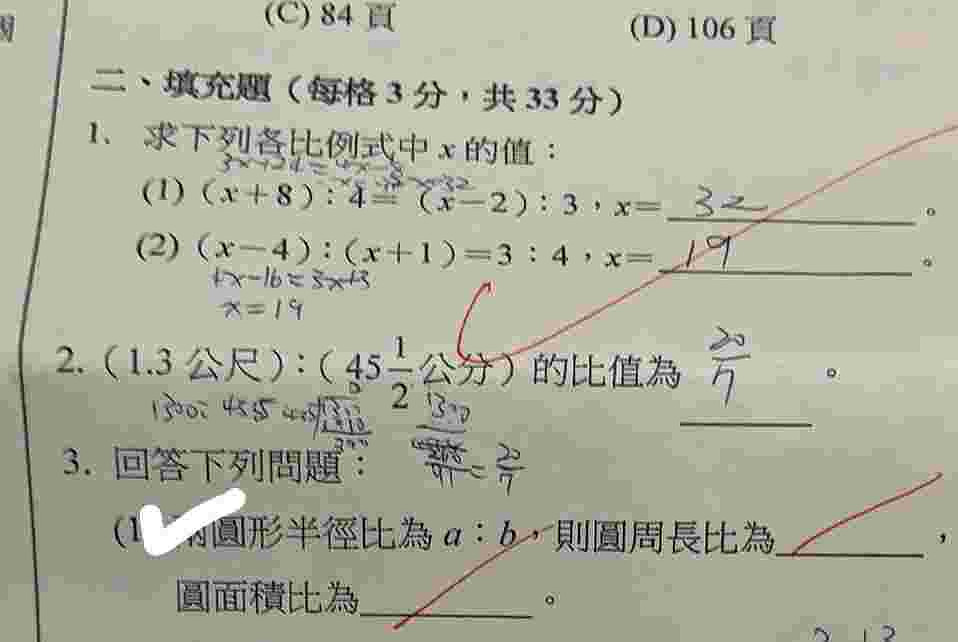 (C) 84 頁 (D) 106 頁
二、填充題（每格 3 分，共 33 分）
1. 求下列各比例式中 x 的值：
3x+24=4x-8
x=32
(1)（x＋8）：4＝（x－2）：3，x＝ 32 。
(2)（x－4）：（x＋1）＝3：4，x＝ 19 。
4x-16=3x+3
x=19
2.（1.3 公尺）：（45 1/2 公分）的比值為 20/7 。
1300÷455
1300
= 20/7
3. 回答下列問題：
(1 兩圓形半徑比為 a：b，則圓周長比為＿＿＿，
圓面積比為＿＿＿。